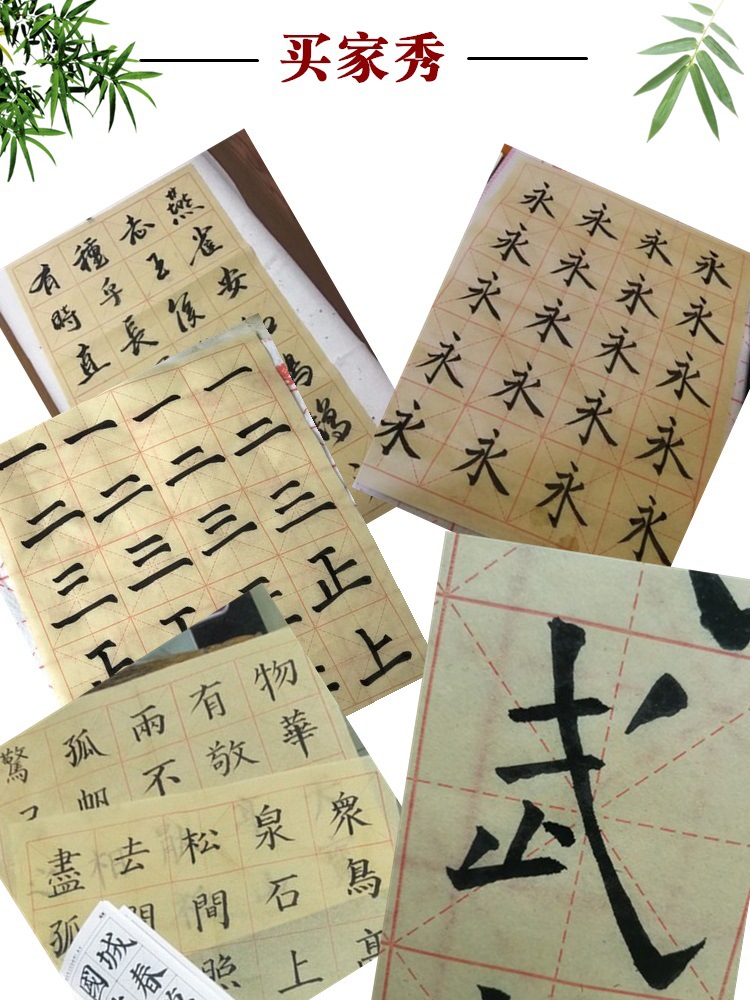 买家秀
燕雀安
志王侯
種乎長
有時直
永永永永永
永永永永永
永永永永永
永永永永永
一二三正上
一二三
一二三
一二三
物華
有敬
兩不
孤
驚
衆鳥高
泉石上
松間照
去
盡孤
城春
國
武